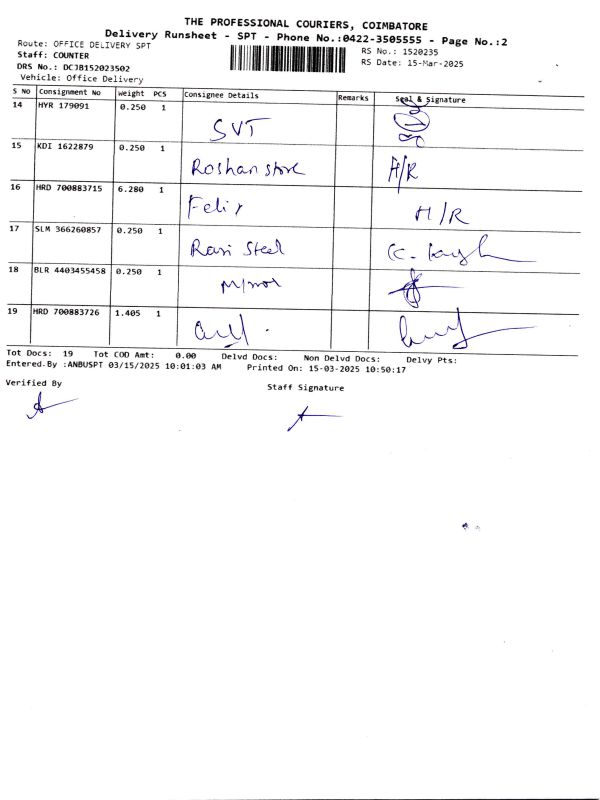 THE PROFESSIONAL COURIERS, COIMBATORE
Delivery Runsheet - SPT - Phone No.:0422-3505555 - Page No.:2
Route: OFFICE DELIVERY SPT
Staff: COUNTER
DRS No.: DCJB152023502
Vehicle: Office Delivery
RS No.: 1520235
RS Date: 15-Mar-2025
S No Consignment No Weight PCS Consignee Details Remarks Seal & Signature
14 HYR 179091 0.250 1 SVT
15 KDI 1622879 0.250 1 Roshan store H/R
16 HRD 700883715 6.280 1 Felix H/R
17 SLM 366260857 0.250 1 Ravi Steel
18 BLR 4403455458 0.250 1
19 HRD 700883726 1.405 1
Tot Docs: 19 Tot COD Amt: 0.00 Delvd Docs: Non Delvd Docs: Delvy Pts:
Entered.By :ANBUSPT 03/15/2025 10:01:03 AM Printed On: 15-03-2025 10:50:17
Verified By
Staff Signature